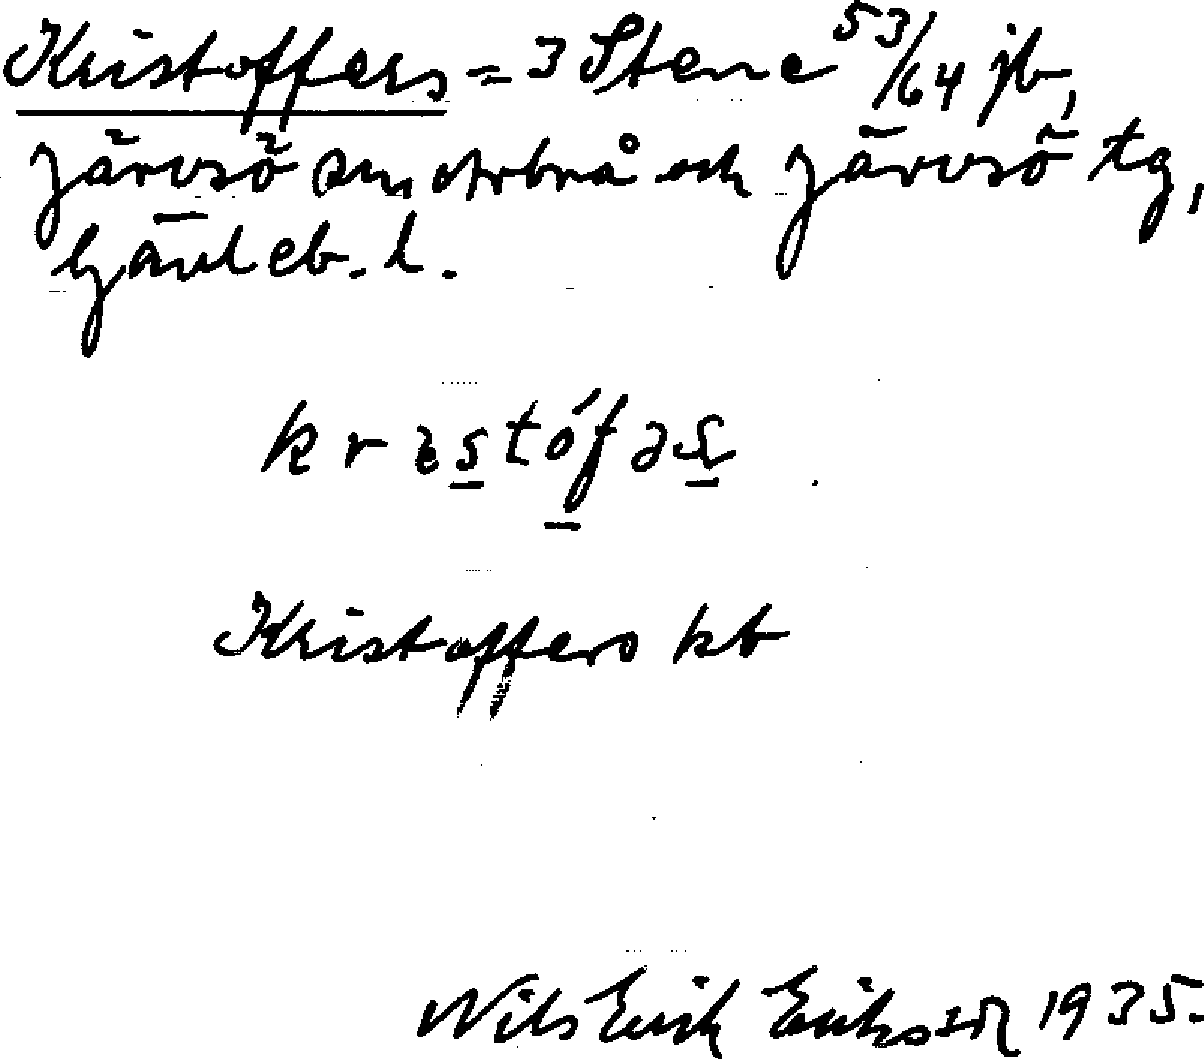 Kristoffers = 3 Stene 53/64 jb,
Järvsö sn, Arbrå och Järvsö tg,
Gävleb. l.
krɪstófəs
Kristoffers kb
Nils Erik Eriksson 1935.